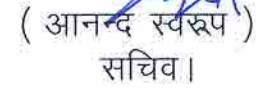 ( आनन्द स्वरूप )
सचिव।